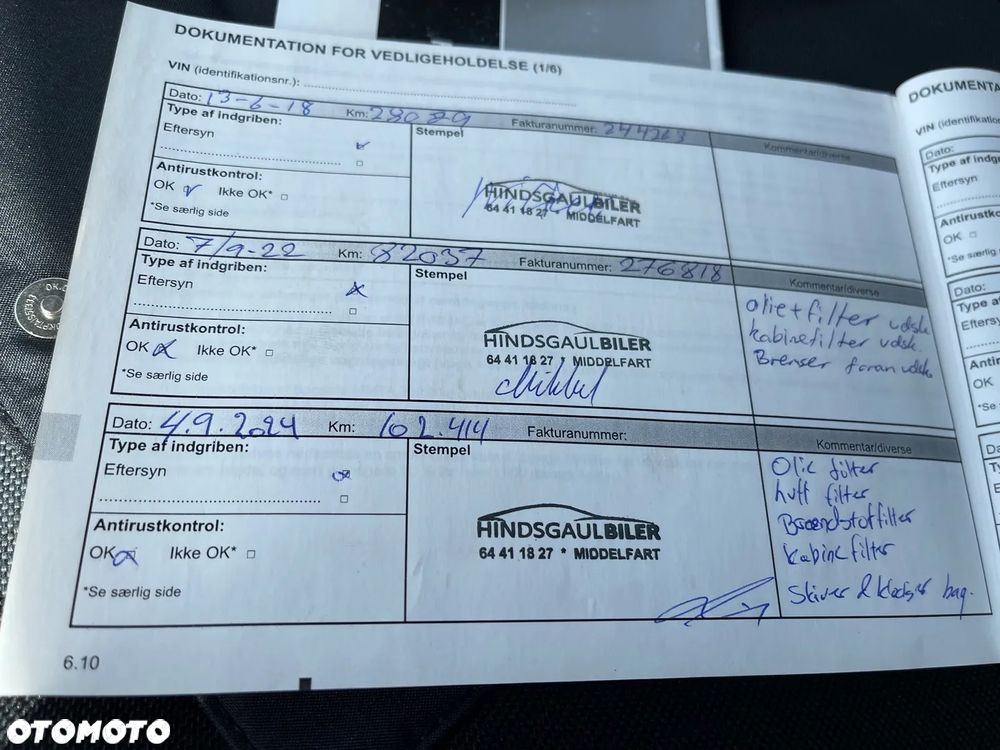 DOKUMENTATION FOR VEDLIGEHOLDELSE (1/6)
VIN (identifikationsnr.):
Dato: 13-6-18 Km: 28089 Fakturanummer: 244263 Kommentar/diverse
Type af indgriben:
Stempel
Eftersyn
Antirustkontrol:
OK Ikke OK*
*Se særlig side
HINDSGAULBILER
64 41 18 27 * MIDDELFART
Dato: 7/9-22 Km: 82037 Fakturanummer: 276818
Type af indgriben:
Stempel
Kommentar/diverse
Eftersyn
Antirustkontrol:
OK Ikke OK*
*Se særlig side
HINDSGAULBILER
64 41 18 27 * MIDDELFART
Mikkel
olie+filter udsk.
kabinefilter udsk.
Dato: 4.9.2024 Km: 102.414 Fakturanummer:
Type af indgriben:
Stempel
Kommentar/diverse
Eftersyn
Antirustkontrol:
OK Ikke OK*
*Se særlig side
HINDSGAULBILER
64 41 18 27 * MIDDELFART
Olie filter
luft filter
Brændstoffilter
kabinefilter
Skiver & klodser bag.
6.10
DOKUMENTA
VIN (identifikation
Dato:
Type af indg
Eftersyn
Antirustko
OK
*Se særlig
Dato:
Type a
Eftersy
Antir
OK
*Se
OTOMOTO